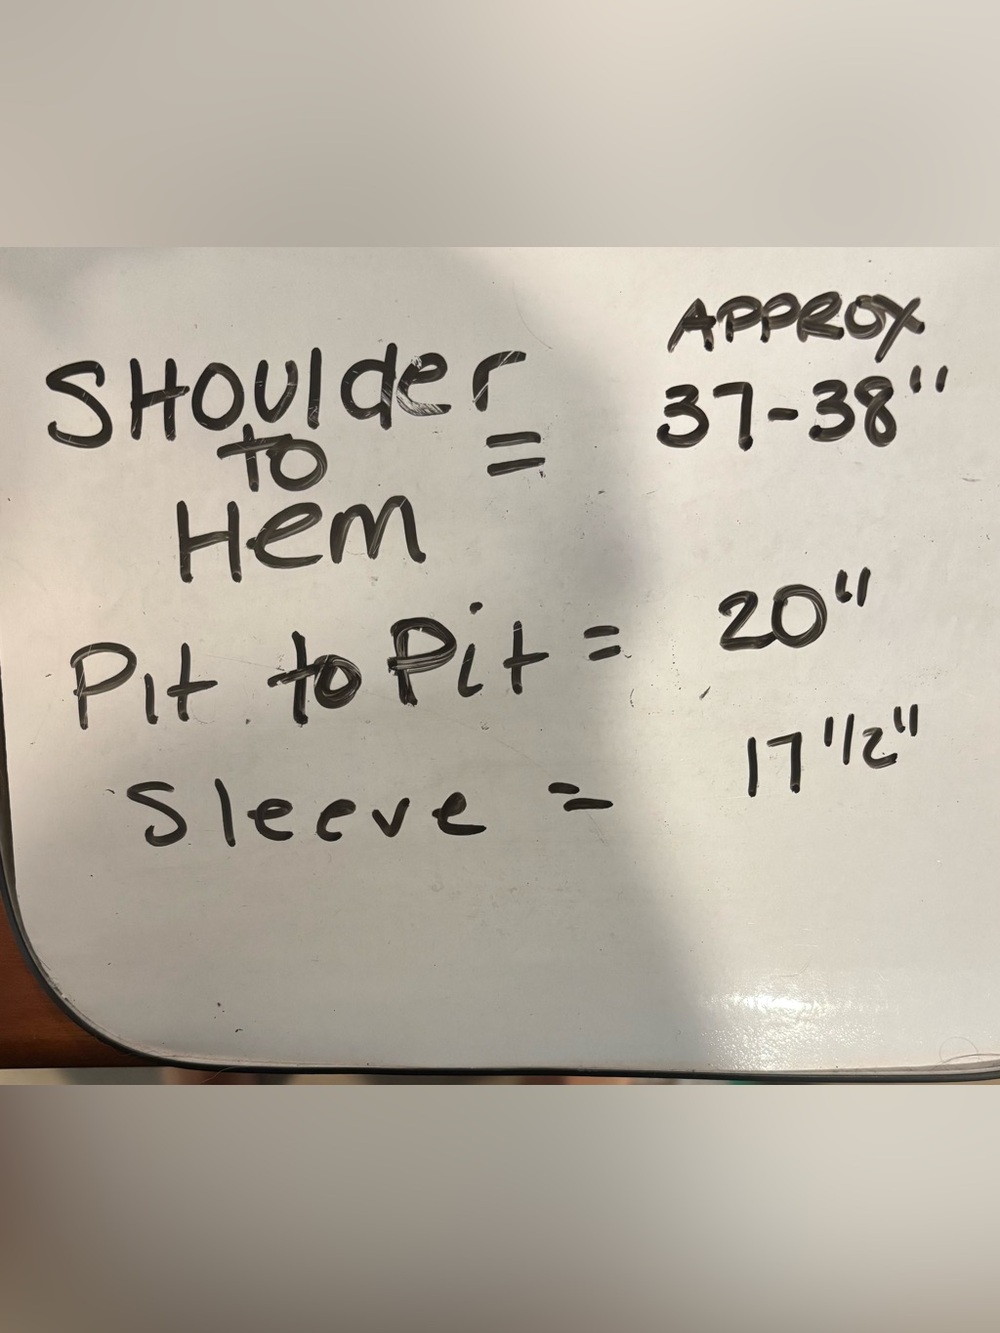 APPROX
SHoulder
to = 37-38"
Hem
Pit to Pit = 20"
Sleeve = 17 1/2"